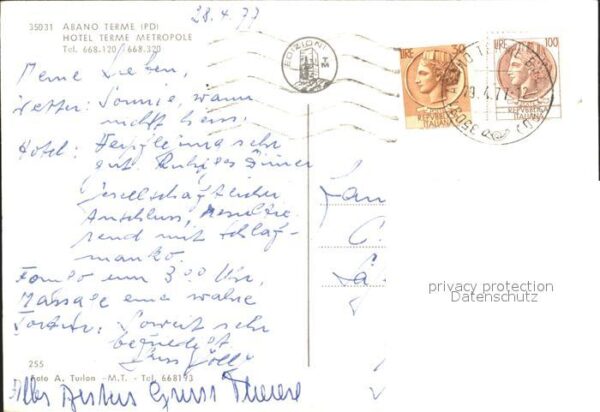 28.4.77
35031 ABANO TERME (PD)
HOTEL TERME METROPOLE
Tel. 668.120 / 668.320
EDIZIONI
LIRE 30
LIRE 100
REPUBBLICA
ITALIANA
REPUBBLICA
ITALIANA
29.4.77
35031
Meine Lieben,
Wetter: Sonnig, warm
nicht heiss.
Hotel: Verpflegung sehr
gut. Ruhiges Zimmer
Gesellschaftlicher
Anschluss,
rend mit Schlaf-
manko.
Fango um 3 00 Uhr,
Massage eine wahre
Tortur. Soweit sehr
befriedigt
Alles Gruss Therese
privacy protection
Datenschutz
255
Foto A. Turlon - M.T. - Tel. 668193